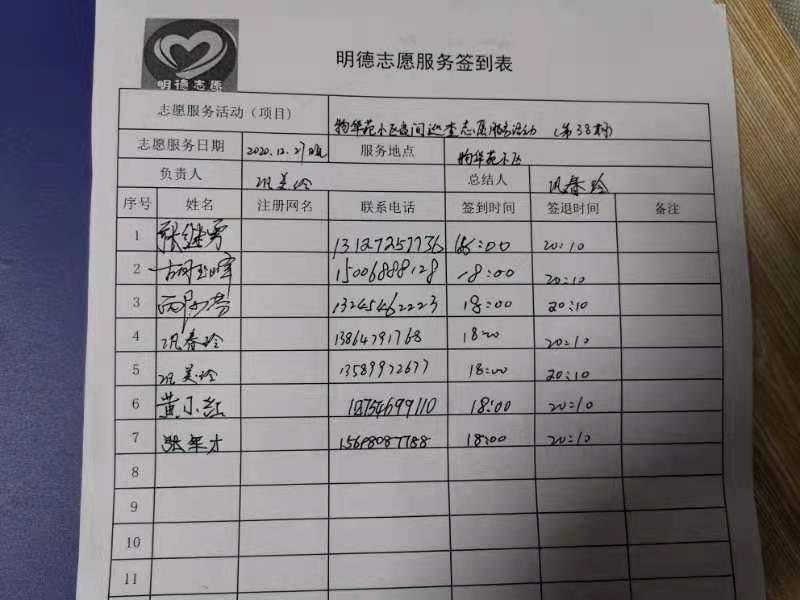 明德志愿
明德志愿服务签到表
志愿服务活动(项目) 物华苑小区夜间巡查志愿服务活动 (第38期)
志愿服务日期 2020.12.27晚 服务地点 物华苑小区
负责人 巩美玲 总结人 巩春玲
序号 姓名 注册网名 联系电话 签到时间 签退时间 备注
1 张继勇 13127257736 18:00 20:10
2 15006888128 18:00 20:10
3 13245462223 18:00 20:10
4 巩春玲 13864791768 18:00 20:10
5 巩美玲 13589972677 18:00 20:10
6 黄小红 18754699110 18:00 20:10
7 张年才 18:00 20:10
8
9
10
11